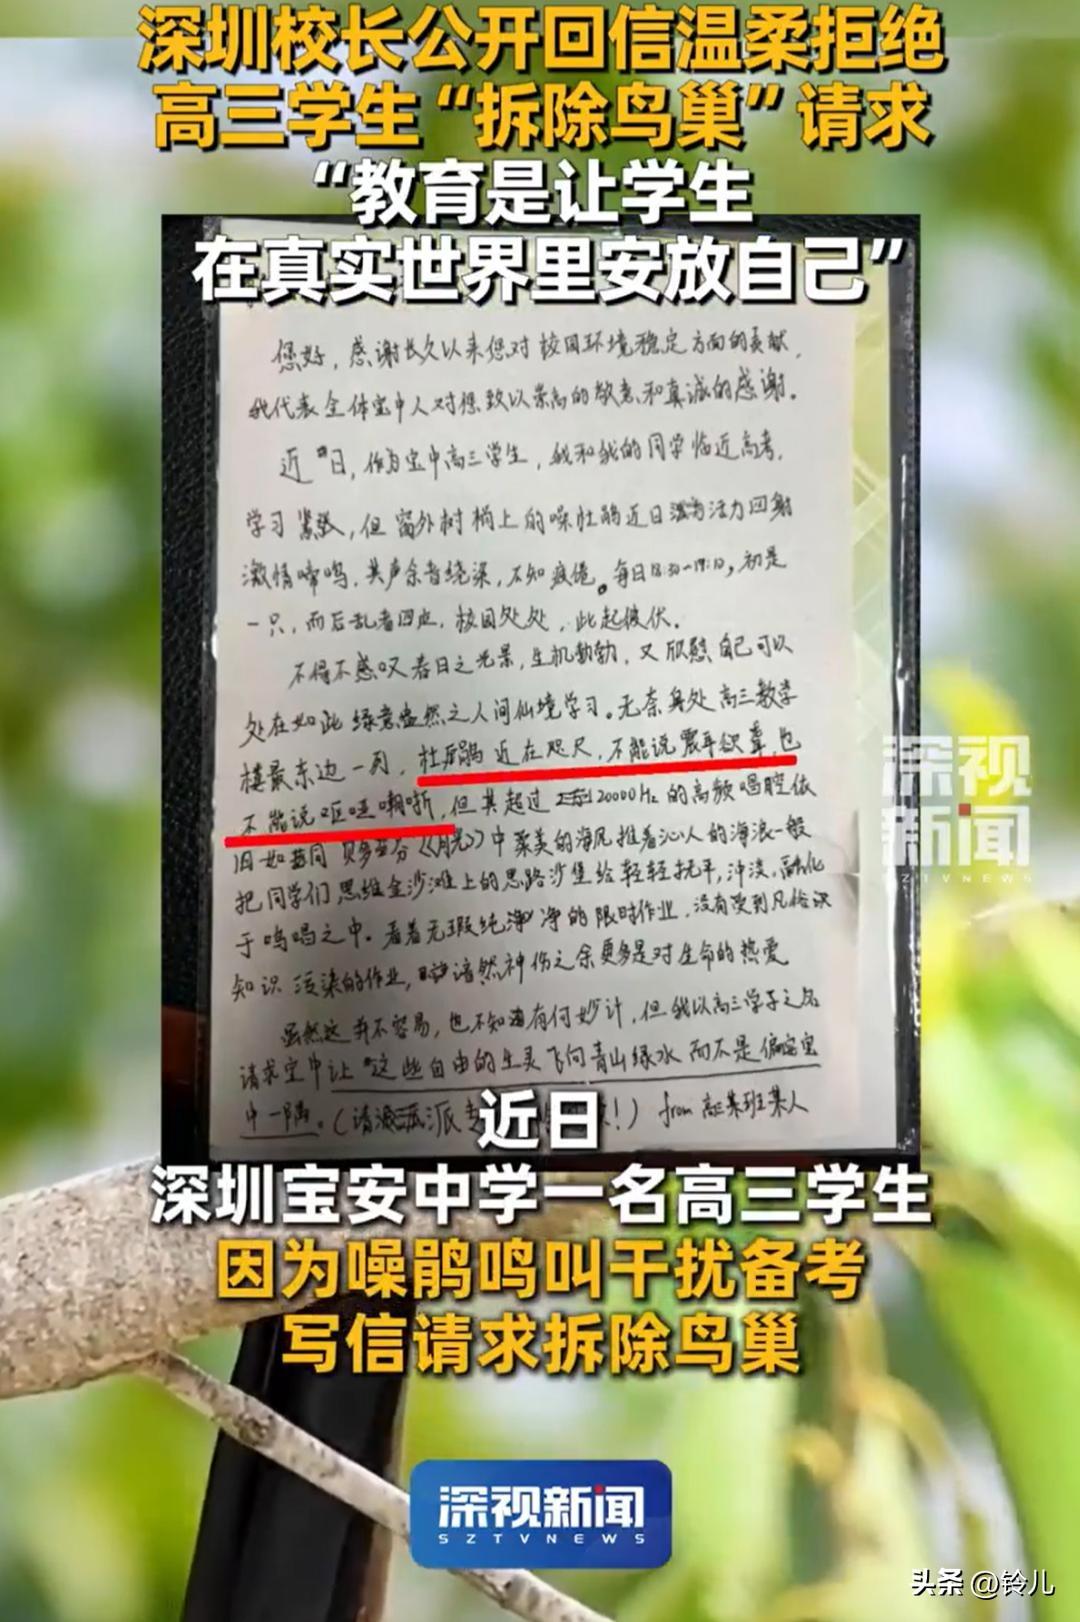 深圳校长公开回信温柔拒绝
高三学生“拆除鸟巢”请求
“教育是让学生
在真实世界里安放自己”
您好，感谢长久以来您对校园环境稳定方面的贡献，
我代表全体宝中人对您致以崇高的敬意和真诚的感谢。
近日，作为宝中高三学生，我和我的同学临近高考，
学习紧张，但窗外树梢上的噪杜鹃近日活力回射
激情啼鸣，其声余音绕梁，不知疲倦。每日18:30-19:10，初是
一只，而后乱者四应，校园处处，此起彼伏。
不得不感叹春日之光景，生机勃勃，又欣慰自己可以
处在如此绿意盎然之人间仙境学习。无奈身处高三教学
楼最东边一列，杜鹃近在咫尺，不能说震耳欲聋，也
不能说呕哑嘲哳，但其超过20000Hz的高频唱腔依
旧如同贝多芬《月光》中柔美的海风推着沁人的海浪一般
把同学们思维金沙滩上的思路沙堡给轻轻抚平，冲淡，融化
于鸣唱之中。看着无瑕纯净的限时作业，没有受到凡俗
知识污染的作业，黯然神伤之余更多是对生命的热爱
虽然这并不容易，也不知有何妙计，但我以高三学子之名
请求宝中让这些自由的生灵飞向青山绿水而不是偏安宝
中一隅。（请派 ！）from 高三某班某人
近日
深圳宝安中学一名高三学生
因为噪鹃鸣叫干扰备考
写信请求拆除鸟巢
深视新闻
SZTVNEWS
深视
新闻
SZTVNEWS
头条 @铃儿